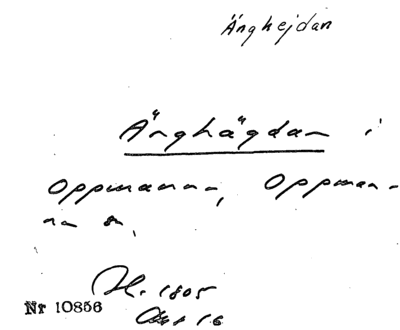 Änghejdan
Änghägdan i
Oppmanna, Oppman-
na sn.
H. 1805
Nr 10856
Akt 16